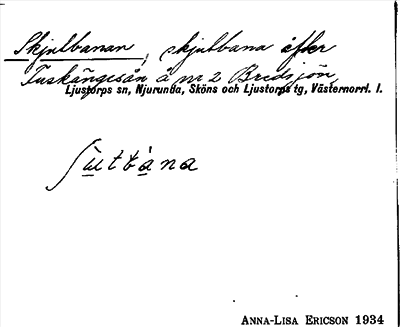 Skjutbanan, skjutbana åfter
Tuskängesån å nr 2 Bredsjön,
Ljustorps sn, Njurunda, Sköns och Ljustorps tg, Västernorrl. l.
ʃu̇tbȧna
ANNA-LISA ERICSON 1934